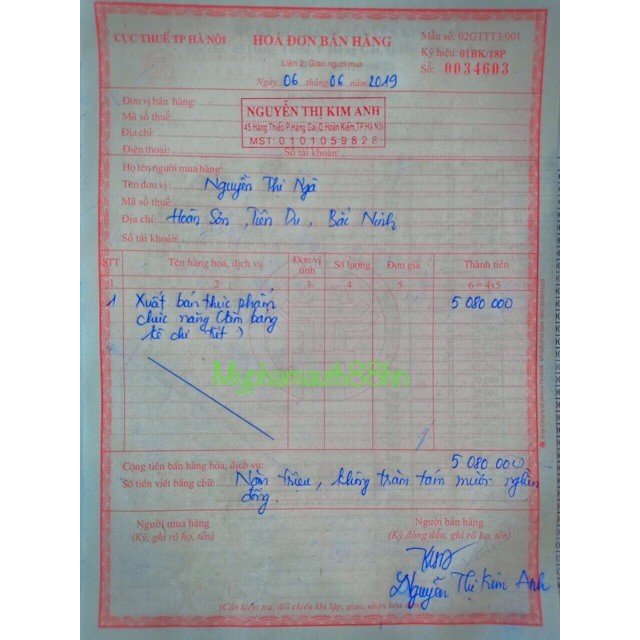 CỤC THUẾ TP HÀ NỘI
HOÁ ĐƠN BÁN HÀNG
Mẫu số: 02GTTT3/001
Ký hiệu: 01BK/18P
Liên 2: Giao người mua
Số: 0034603
Ngày 06 tháng 06 năm 2019
Đơn vị bán hàng:
NGUYỄN THỊ KIM ANH
Mã số thuế:
45 Hàng Thiếc-P.Hàng Gai,Q.Hoàn Kiếm,TP.Hà Nội
Địa chỉ:
MST: 0101059828
Điện thoại: Số tài khoản:
Họ tên người mua hàng:
Tên đơn vị: Nguyễn Thị Ngà
Mã số thuế:
Địa chỉ: Hoàn Sơn, Tiên Du, Bắc Ninh
Số tài khoản:
STT Tên hàng hóa, dịch vụ Đơn vị tính Số lượng Đơn giá Thành tiền
1 2 3 4 5 6 = 4x5
1 Xuất bán thực phẩm 5 080 000
chức năng (kèm bảng
kê chi tiết)
Myphamauth88hn
Cộng tiền bán hàng hóa, dịch vụ: 5 080 000
Số tiền viết bằng chữ: Năm triệu, không trăm tám mươi nghìn
đồng.
Người mua hàng Người bán hàng
(Ký, ghi rõ họ, tên) (Ký,đóng dấu, ghi rõ họ, tên)
Nguyễn Thị Kim Anh
(Cần kiểm tra, đối chiếu khi lập, giao, nhận hóa đơn)